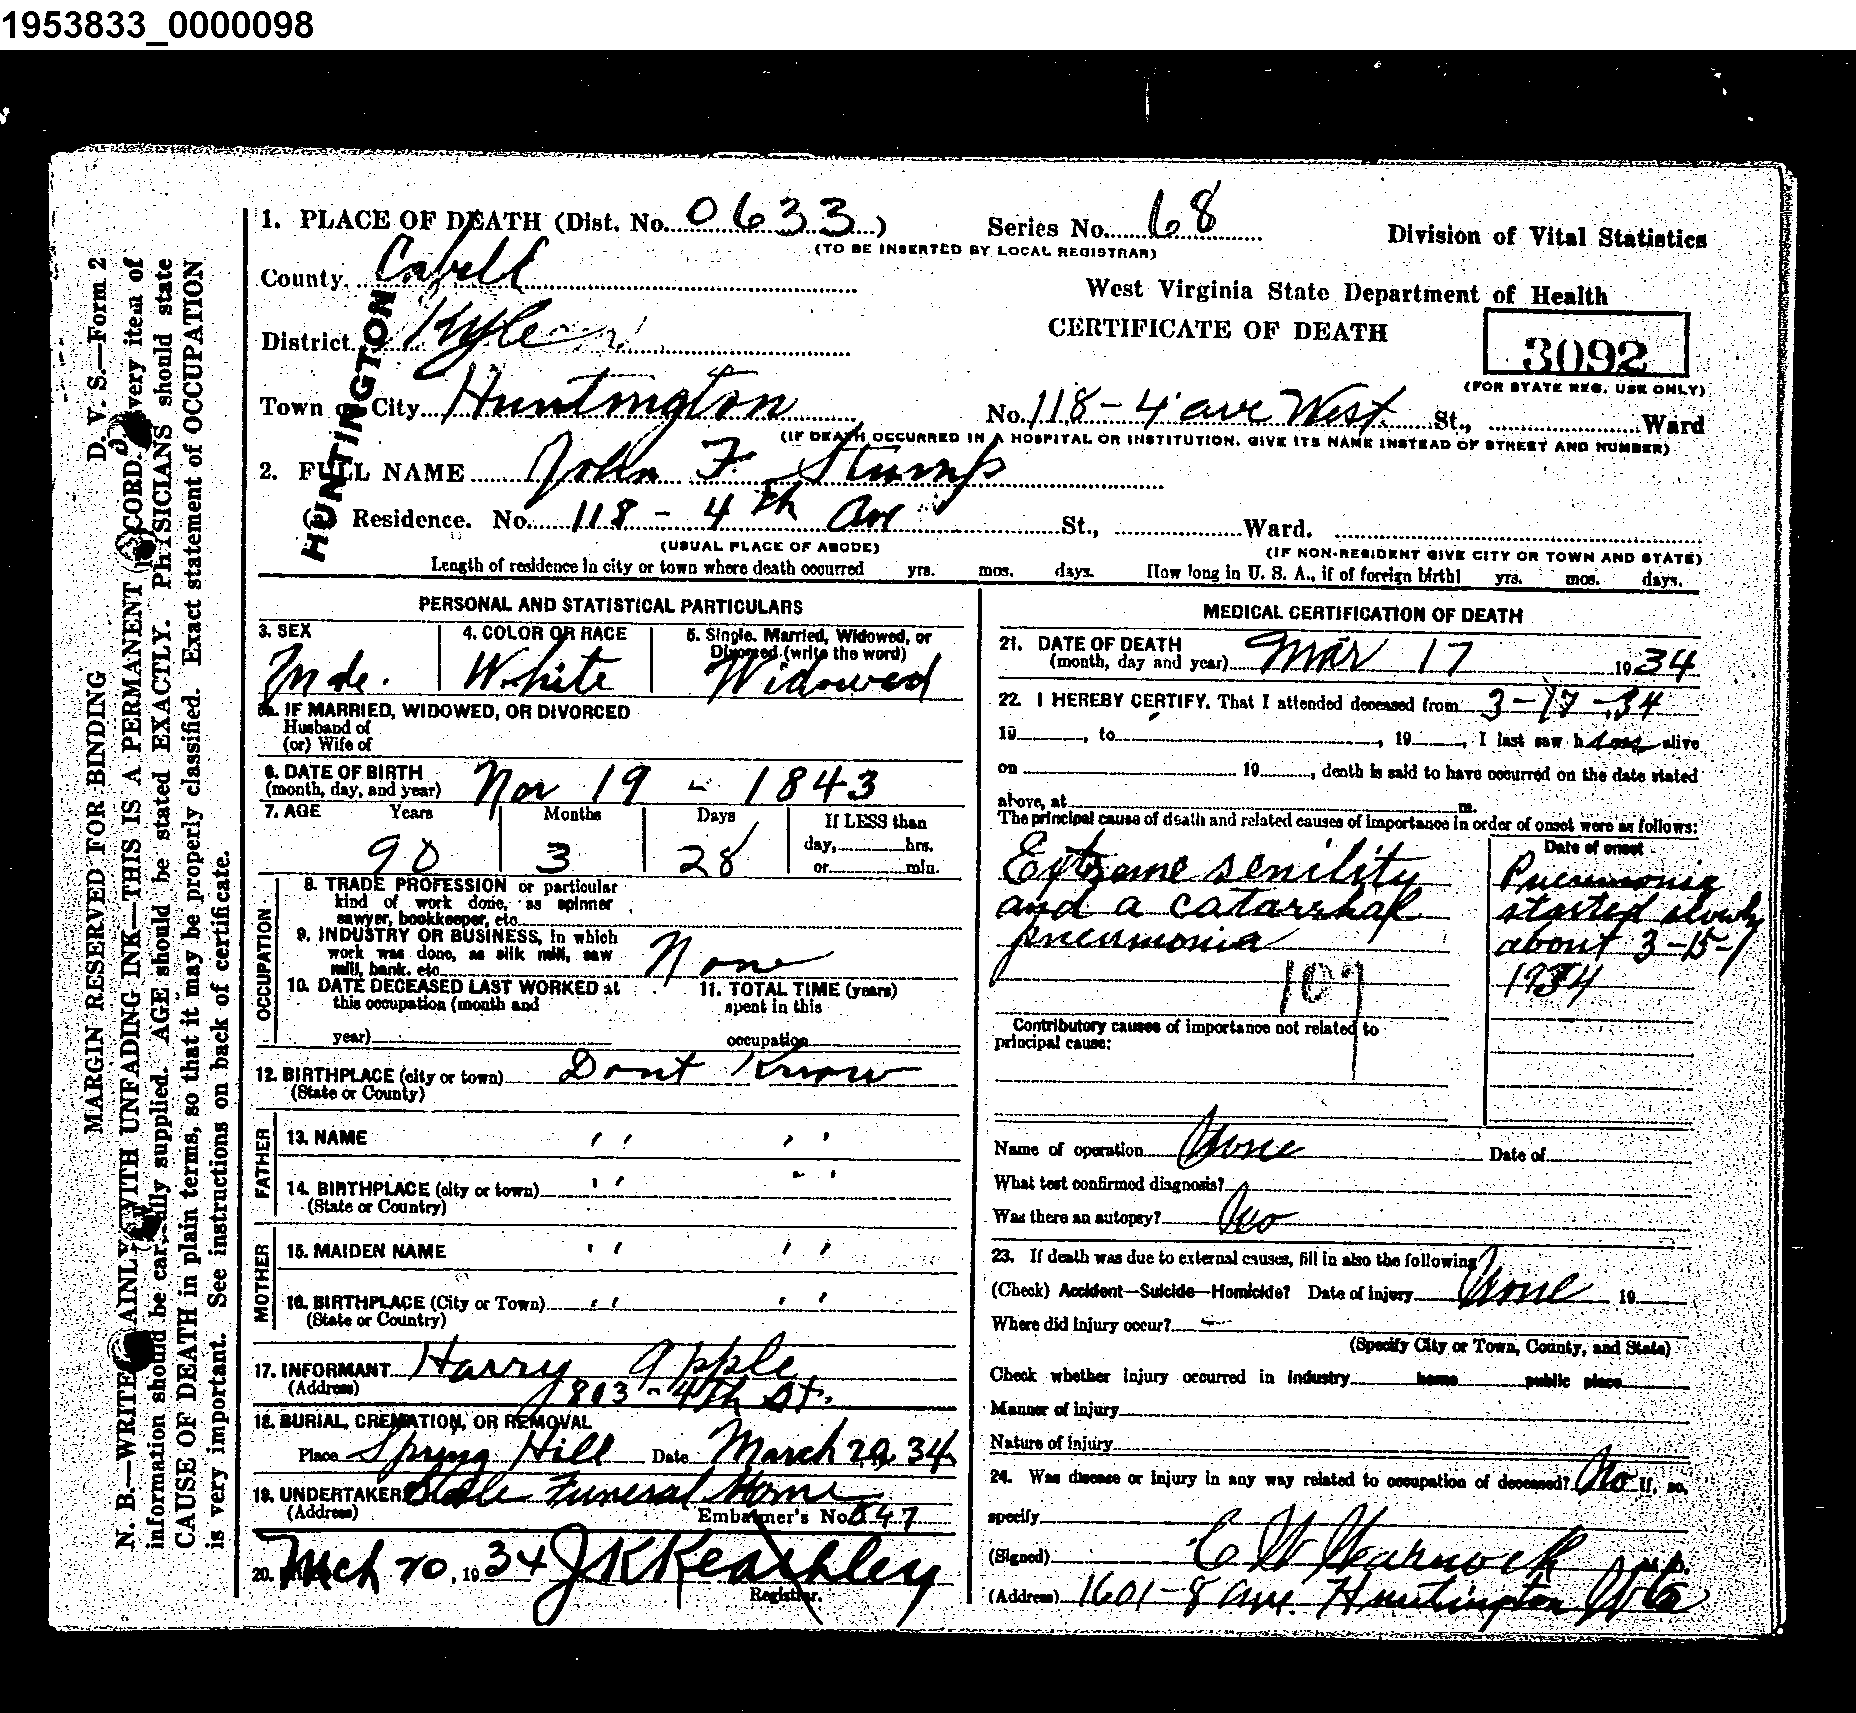 1953833_0000098
1. PLACE OF DEATH (Dist. No. 0633)
Series No. 68
(TO BE INSERTED BY LOCAL REGISTRAR)
Division of Vital Statistics
County. Cabell
West Virginia State Department of Health
CERTIFICATE OF DEATH
3092
(FOR STATE REG. USE ONLY)
District. Kyle
HUNTINGTON
Town or City. Huntington
No. 118-4 ave West. St., Ward
(IF DEATH OCCURRED IN A HOSPITAL OR INSTITUTION, GIVE ITS NAME INSTEAD OF STREET AND NUMBER)
2. FULL NAME John F. Stump
(a) Residence. No. 118 - 4th Ave St., Ward.
(USUAL PLACE OF ABODE)
(IF NON-RESIDENT GIVE CITY OR TOWN AND STATE)
Length of residence in city or town where death occurred yrs. mos. days. How long in U. S. A., if of foreign birth! yrs. mos. days.
PERSONAL AND STATISTICAL PARTICULARS
3. SEX
4. COLOR OR RACE
5. Single. Married, Widowed, or
Divorced (write the word)
White
Widowed
5a. IF MARRIED, WIDOWED, OR DIVORCED
Husband of
(or) Wife of
6. DATE OF BIRTH
(month, day, and year) Nov 19 - 1843
7. AGE Years Months Days If LESS than
day, hrs.
or min.
90 3 28
OCCUPATION
8. TRADE PROFESSION or particular
kind of work done, as spinner
sawyer, bookkeeper, etc
9. INDUSTRY OR BUSINESS, in which
work was done, as silk mill, saw
mill, bank, etc None
10. DATE DECEASED LAST WORKED at
this occupation (month and
year)
11. TOTAL TIME (years)
spent in this
occupation
12. BIRTHPLACE (city or town) Dont Know
(State or County)
FATHER
13. NAME " "
14. BIRTHPLACE (city or town) " "
(State or Country)
MOTHER
15. MAIDEN NAME " "
16. BIRTHPLACE (City or Town) " "
(State or Country)
17. INFORMANT Harry Apple
(Address) 803 - 4th St.
18. BURIAL, CREMATION, OR REMOVAL
Place Spring Hill Date March 20, 34
19. UNDERTAKER Funeral Home
(Address)
Embalmer's No. 547
20. Mch 20, 1934 JKKeashley
Registrar.
MEDICAL CERTIFICATION OF DEATH
21. DATE OF DEATH
(month, day and year) Mar 17 1934
22. I HEREBY CERTIFY. That I attended deceased from 3-17-34
19 , to , 19 , I last saw h alive
on 19 , death is said to have occurred on the date stated
above, at m.
The principal cause of death and related causes of importance in order of onset were as follows:
Date of onset
Extreme senility
and a catarrhal
pneumonia
107
Pneumonia
started slowly
about 3-15-
1934
Contributory causes of importance not related to
principal cause:
Name of operation None Date of
What test confirmed diagnosis?
Was there an autopsy? No
23. If death was due to external causes, fill in also the following
(Check) Accident—Suicide—Homicide? Date of injury None 19
Where did injury occur? -
(Specify City or Town, County, and State)
Check whether injury occurred in industry home public place
Manner of injury
Nature of injury
24. Was disease or injury in any way related to occupation of deceased? No If, so.
specify
(Signed) C W Warnock M.D.
(Address) 1601-8 ave. Huntington W Va
D. V. S.—Form 2
MARGIN RESERVED FOR BINDING
N. B.—WRITE PLAINLY WITH UNFADING INK—THIS IS A PERMANENT RECORD. Every item of
information should be carefully supplied. AGE should be stated EXACTLY. PHYSICIANS should state
CAUSE OF DEATH in plain terms, so that it may be properly classified. Exact statement of OCCUPATION
is very important. See instructions on back of certificate.